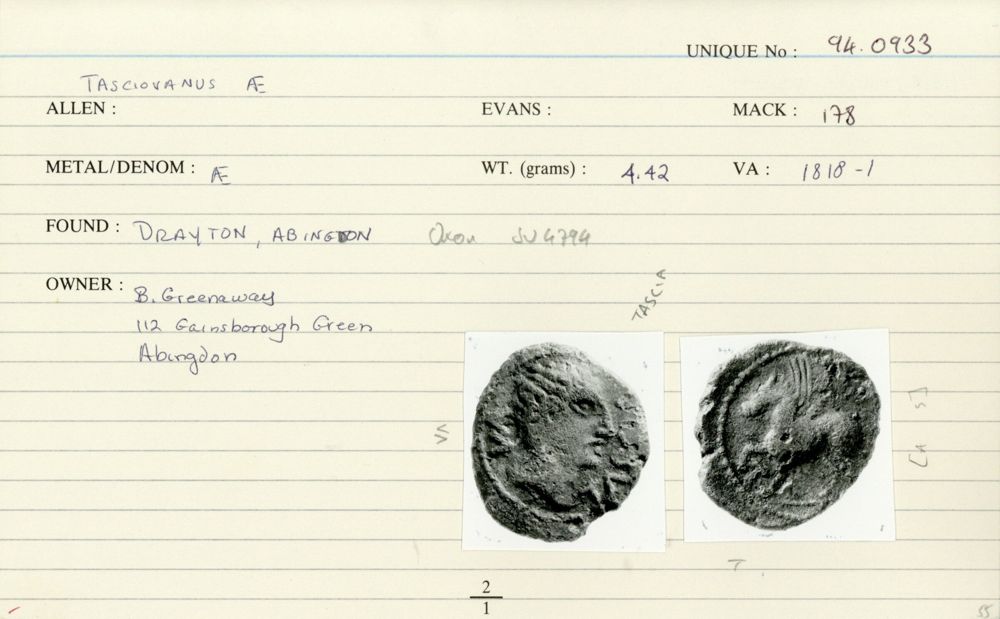 UNIQUE No : 94.0933
TASCIOVANUS Æ
ALLEN : EVANS : MACK : 178
METAL/DENOM : Æ WT. (grams) : 4.42 VA : 1818-1
FOUND : DRAYTON, ABINGDON Oxon SU4794
OWNER : B. Greenaway
112 Gainsborough Green
Abingdon
TASCIA
VA
T
2
1
55